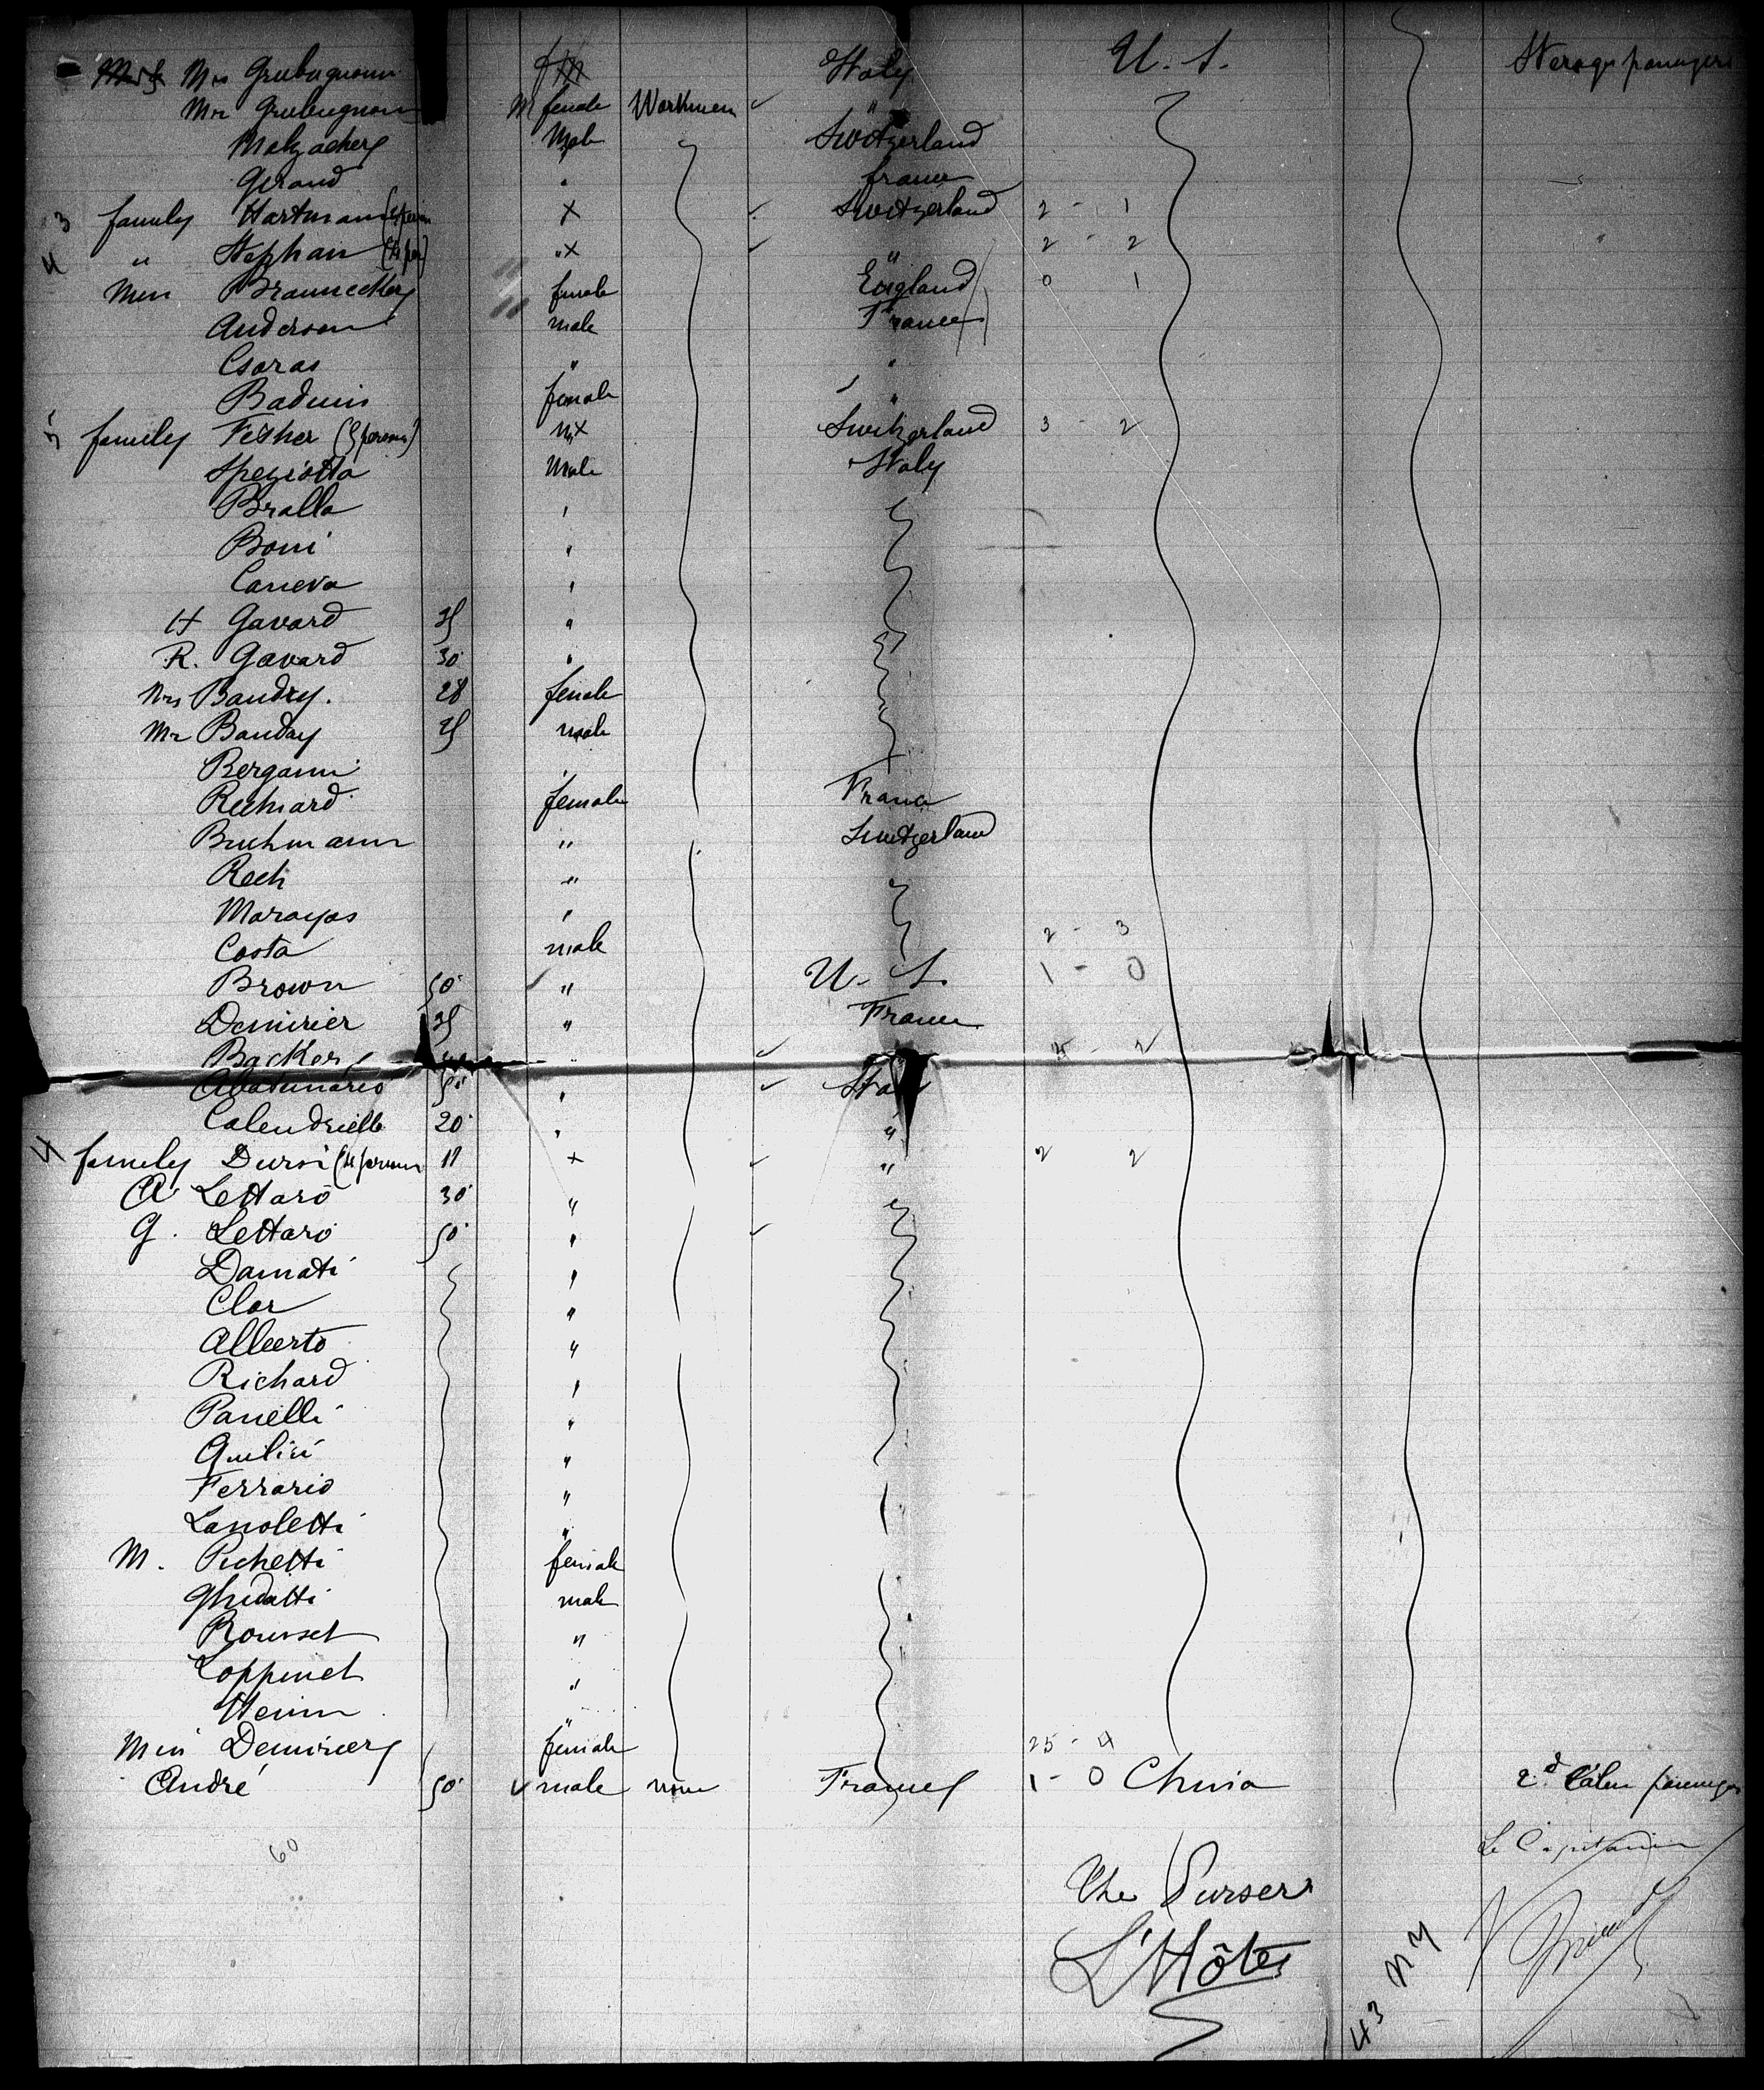 Mrs Grubugnoun Italy U. S. Sterage passagers
Mr Grubugnoun M female Workmen "
Malzachery Male Switzerland
Geraud " france
3 family Hartman X Switzerland 2 - 1
4 " Stephan (4 per) " X " 2 - 2
Miss Braunecker female England 0 1
Anderson male France
Csoras " "
Baduis female "
5 family Fesher (5 persons) X Switzerland 3 - 2
Speziotta Male Italy
Bralla "
Boni "
Caneva "
H Gavard 35 "
R. Gavard 30 "
Mrs Baudry. 28 female
Mr Bauday 35 male
Bergami "
Rechiard female France
Buchmann " Switzerland
Rech "
Marayas "
Costa male 2 - 3
Brown 50 " U. S. 1 - 0
Demirier 35 " France
Backer "
50 "
Calendrielle 20 " "
4 family Dursi (4 persons X " 2 2
A. Lettaro 30 "
G. Lettaro 50 "
Damati "
Clor "
Alberto "
Richard "
Panelli "
"
Ferrario "
Lanoletti "
M. Pichetti female
Ghidatti male
Rousset "
Loppinet "
Henin "
Miss Demirier female 25 - 4
André 50 male none France 1 - 0 China 2d Cabin passenger
60
Le Capitaine
The Purser
L'Hôte
43 N Y